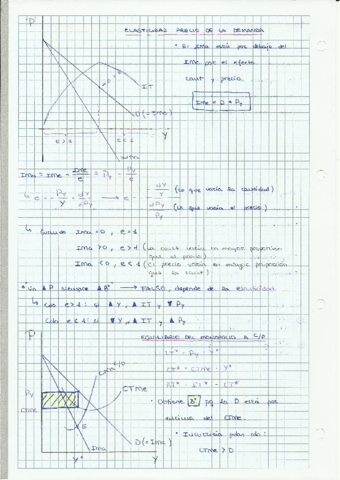 P
ELASTICIDAD PRECIO DE LA DEMANDA
• El Ima está por debajo del
Ime por el efecto
cant y precio
Ime = D = Py
IT
D (= Ime)
e > 1
e < 1
Y
Ima
Ima = Ime - Ime/e = Py - Py/e
↳ e = - Py/Y · dY/dPy → e = - dY/Y (Lo que varía la cantidad)
dPy/Py (Lo que varía el precio)
↳ Cuando Ima = 0, e = 1
Ima > 0, e > 1 (La cant varía en mayor proporción
que el precio)
Ima < 0, e < 1 (El precio varía en mayor proporción
que la cant)
• Un ▲P siempre ▲B° → FALSO, depende de la elasticidad
↳ Cdo e > 1: si ▲Y, ▲IT y ▼Py
Cdo e < 1: si ▼Y, ▲IT y ▲Py
P
EQUILIBRIO DEL MONOPOLIO A C/P
IT* = Py · Y*
CT* = CTMe · Y*
BT* = IT* - CT*
Cma C/P
CTMe
Py
CTMe
E
Y*
Ima
D (= Ime)
Y
• Obtiene B° pq la D está por
encima del CTMe.
• Incurriría pdas cdo:
CTMe > D